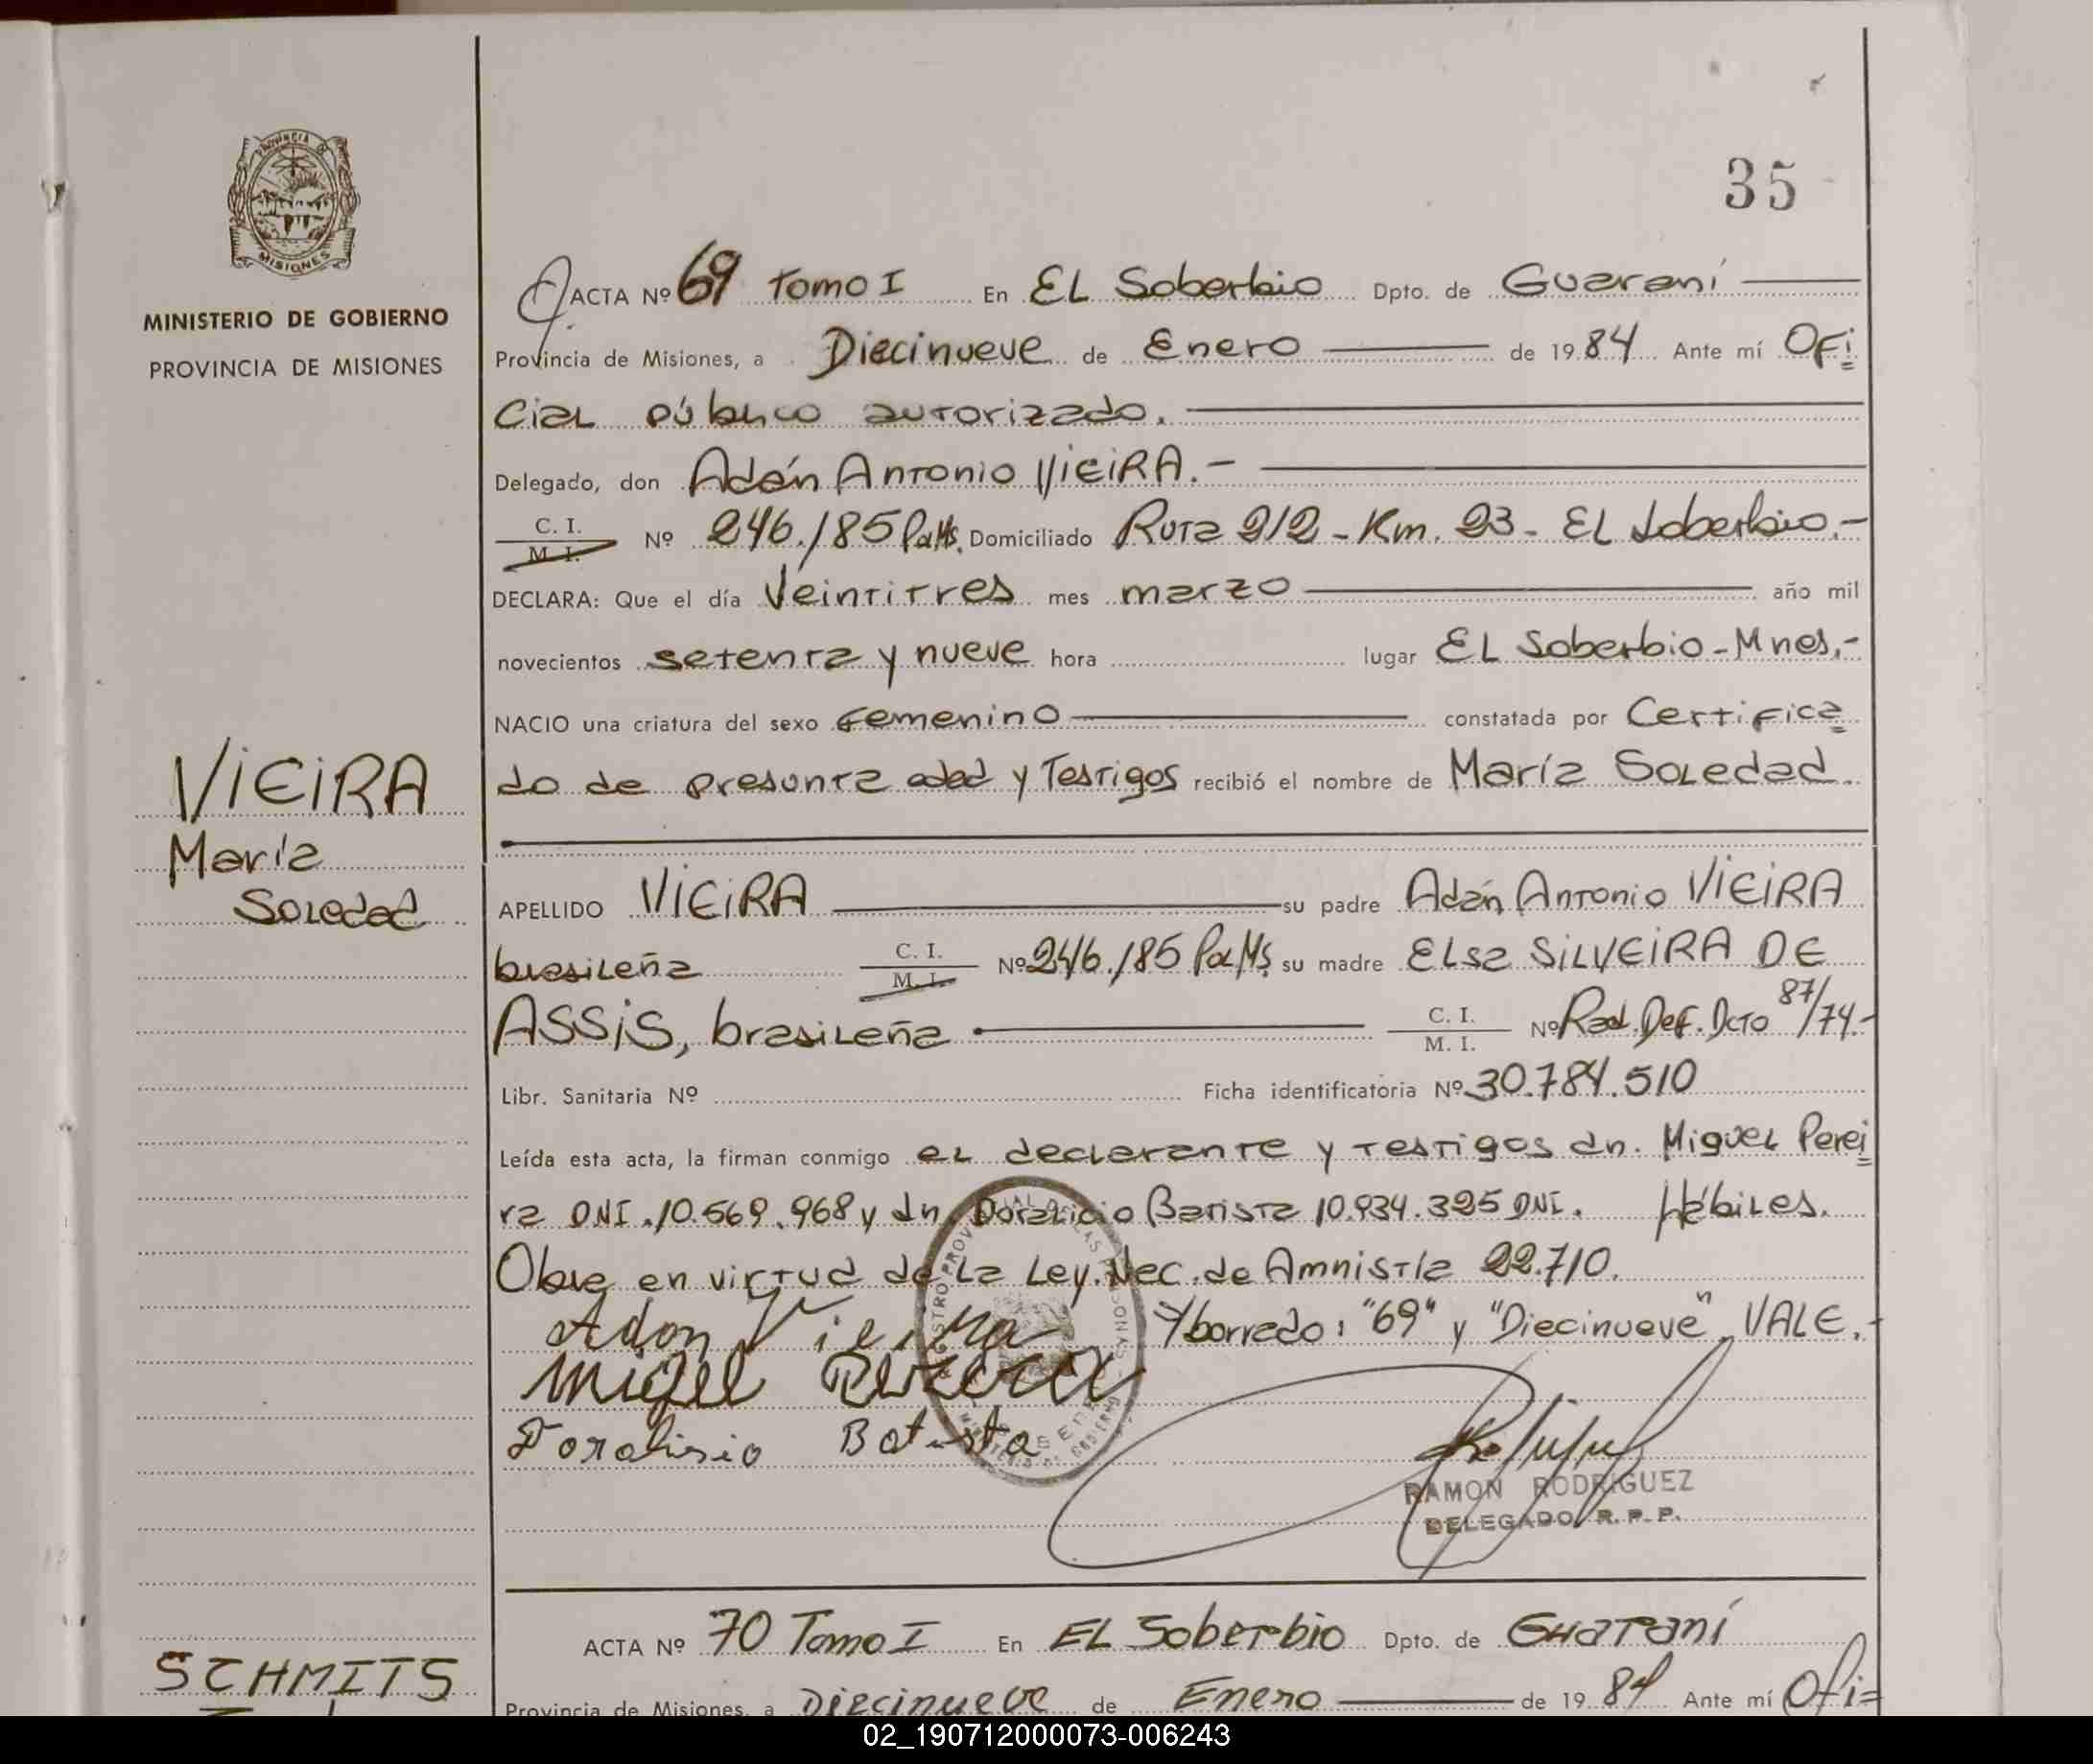 35
PROVINCIA DE
MISIONES
MINISTERIO DE GOBIERNO
PROVINCIA DE MISIONES
ACTA Nº 69 Tomo I En EL Soberbio Dpto. de Guaraní
Provincia de Misiones, a Diecinueve de Enero de 1984 Ante mí Ofi
cial público autorizado.
Delegado, don Adán Antonio VIEIRA.-
C. I.
M. I.
Nº 246./85 PolMs. Domiciliado Ruta 212 - Km. 23 - EL Soberbio.-
DECLARA: Que el día Veintitres mes marzo año mil
novecientos setenta y nueve hora lugar EL Soberbio - Mnes.-
NACIO una criatura del sexo femenino constatada por Certifica
do de presunta edad y Testigos recibió el nombre de María Soledad
VIEIRA
María
Soledad
APELLIDO VIEIRA su padre Adán Antonio VIEIRA
brasileña C. I. M. I. Nº 246./85 PolMs su madre ELsa SILVEIRA DE
ASSIS, brasileña C. I. M. I. Nº Rad. Def. Dcto 87/74.-
Libr. Sanitaria Nº Ficha identificatoria Nº 30.784.510
Leída esta acta, la firman conmigo el declarante y testigos dn. Miguel Perei
ra DNI. 10.569.968 y dn. Doralicio Batista 10.934.325 DNI. Hábiles.
Obre en virtud de la Ley. Nec. de Amnistía 22.710.
Adon Vieira Y borrado: "69" y "Diecinueve" VALE.-
Miguel Pereira
Doralisio Batista
RAMON RODRIGUEZ
DELEGADO R. P. P.
ACTA Nº 70 Tomo I En EL Soberbio Dpto. de Guaraní
SCHMITS
Provincia de Misiones, a Diecinueve de Enero de 1984 Ante mí Ofi=
02_190712000073-006243